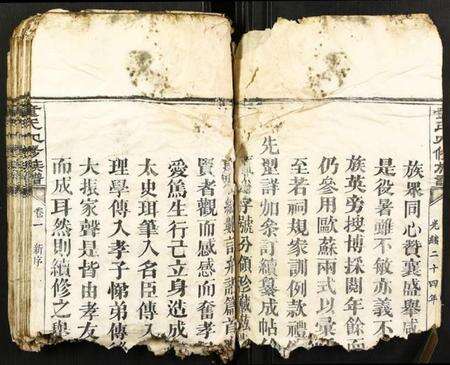 族眾同心贊襄盛舉咸
是役暑雖不敏亦義不
族英旁搜博採閱年餘而
仍參用歐蘇兩式以彙
至者祠規家訓例款禮
先型詳加条訂續纂成帖
字號分領珍藏
賢者觀而感感而奮孝
愛篤生行己立身造成
太史珥筆入名臣傳入
理學傳入孝子悌弟傳
大振家聲是皆由孝友
而成耳然則續修之舉
卷一
新序
光緒二十四年